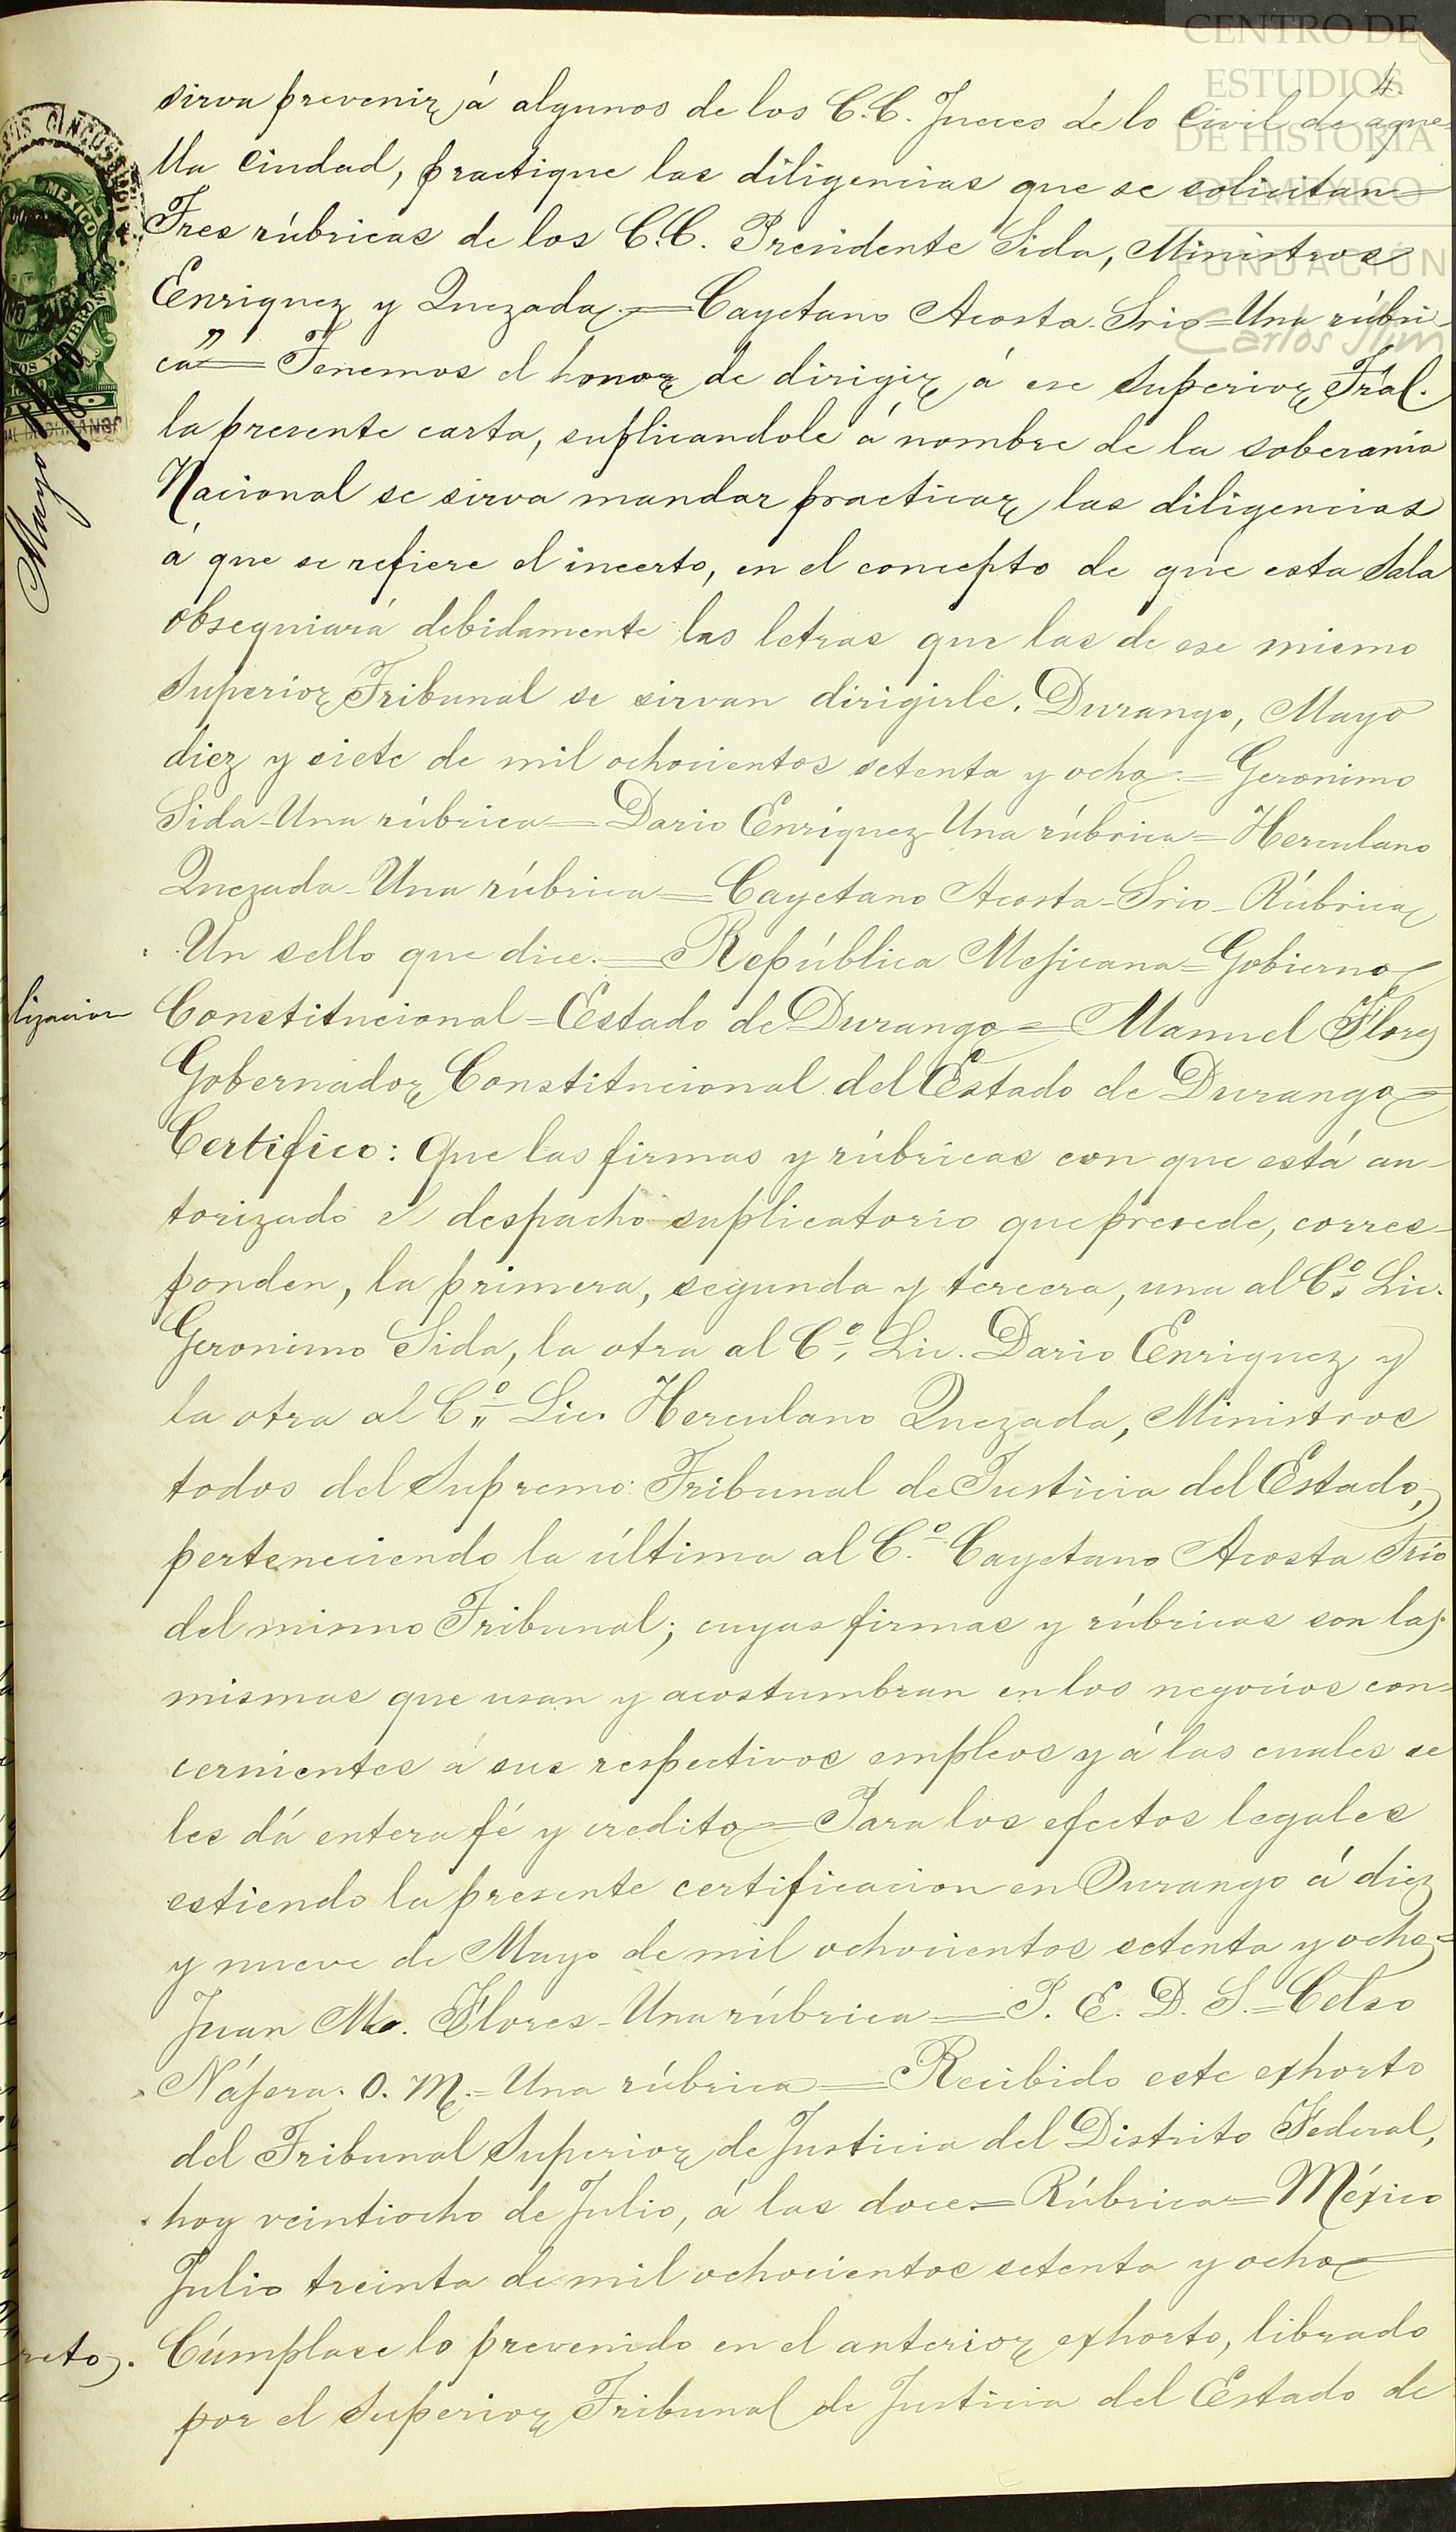 CENTRO DE
ESTUDIOS
DE HISTORIA
DE MÉXICO
FUNDACIÓN
Carlos Slim
4.
sirva prevenir á algunos de los C.C. Jueces de lo Civil de aque-
lla Ciudad, practique las diligencias que se solicitan=
Tres rúbricas de los C.C. Presidente Sida, Ministros
Enriquez y Quezada.=Cayetano Acosta-Srio=Una rúbri-
ca"= Tenemos el honor de dirigir á ese Superior Tral.
la presente carta, suplicandole á nombre de la soberania
Nacional se sirva mandar practicar las diligencias
á que se refiere el incerto, en el concepto de que esta Sala
obsequiará debidamente las letras que las de ese mismo
Superior Tribunal se sirvan dirigirle. Durango, Mayo
diez y siete de mil ochocientos setenta y ocho.=Geronimo
Sida-Una rúbrica=Dario Enriquez-Una rúbrica=Herculano
Quezada-Una rúbrica=Cayetano Acosta-Srio-Rúbrica
Un sello que dice.=República Mejicana=Gobierno
lizacion
Constitucional=Estado de Durango=Manuel Flores
Gobernador Constitucional del Estado de Durango=
Certifico: Que las firmas y rúbricas con que está au-
torizado el despacho suplicatorio que precede, corres-
ponden, la primera, segunda y tercera, una al C.º Lic.
Geronimo Sida, la otra al C.º Lic. Dario Enriquez y
la otra al C.º Lic. Herculano Quezada, Ministros
todos del Supremo Tribunal de Justicia del Estado,
perteneciendo la última al C.º Cayetano Acosta Srio
del mismo Tribunal; cuyas firmas y rúbricas son las
mismas que usan y acostumbran en los negocios con-
cernientes á sus respectivos empleos y á las cuales se
les dá entera fé y credito=Para los efectos legales
estiendo la presente certificacion en Durango á diez
y nueve de Mayo de mil ochocientos setenta y ocho=
Juan Ma. Flores-Una rúbrica=P. E. D. S.=Celso
Nájera. O. M.=Una rúbrica=Recibido este exhorto
del Tribunal Superior de Justicia del Distrito Federal,
hoy veintiocho de Julio, á las doce=Rúbrica=México
Julio treinta de mil ochocientos setenta y ocho=
reto.
Cúmplase lo prevenido en el anterior exhorto, librado
por el Superior Tribunal de Justicia del Estado de
MEXICO
Mayo